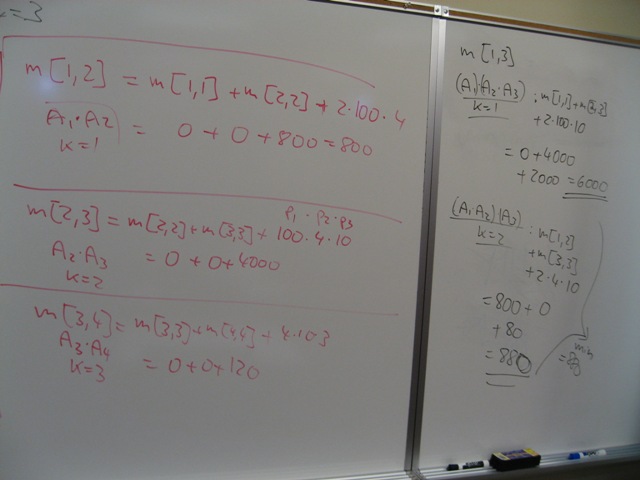 k=3
m[1,2] = m[1,1] + m[2,2] + 2·100·4
A₁·A₂ = 0 + 0 + 800 = 800
k=1
P₁ · P₂ · P₃
m[2,3] = m[2,2] + m[3,3] + 100·4·10
A₂·A₃ = 0 + 0 + 4000
k=2
m[3,4] = m[3,3] + m[4,4] + 4·10·3
A₃·A₄
k=3 = 0 + 0 + 120
m[1,3]
(A₁)(A₂·A₃) : m[1,1] + m[2,3]
k=1 + 2·100·10
= 0 + 4000
+ 2000 = 6000
(A₁A₂)(A₃) : m[1,2]
k=2 + m[3,3]
+ 2·4·10
= 800 + 0
+ 80
= 880
min
= 880